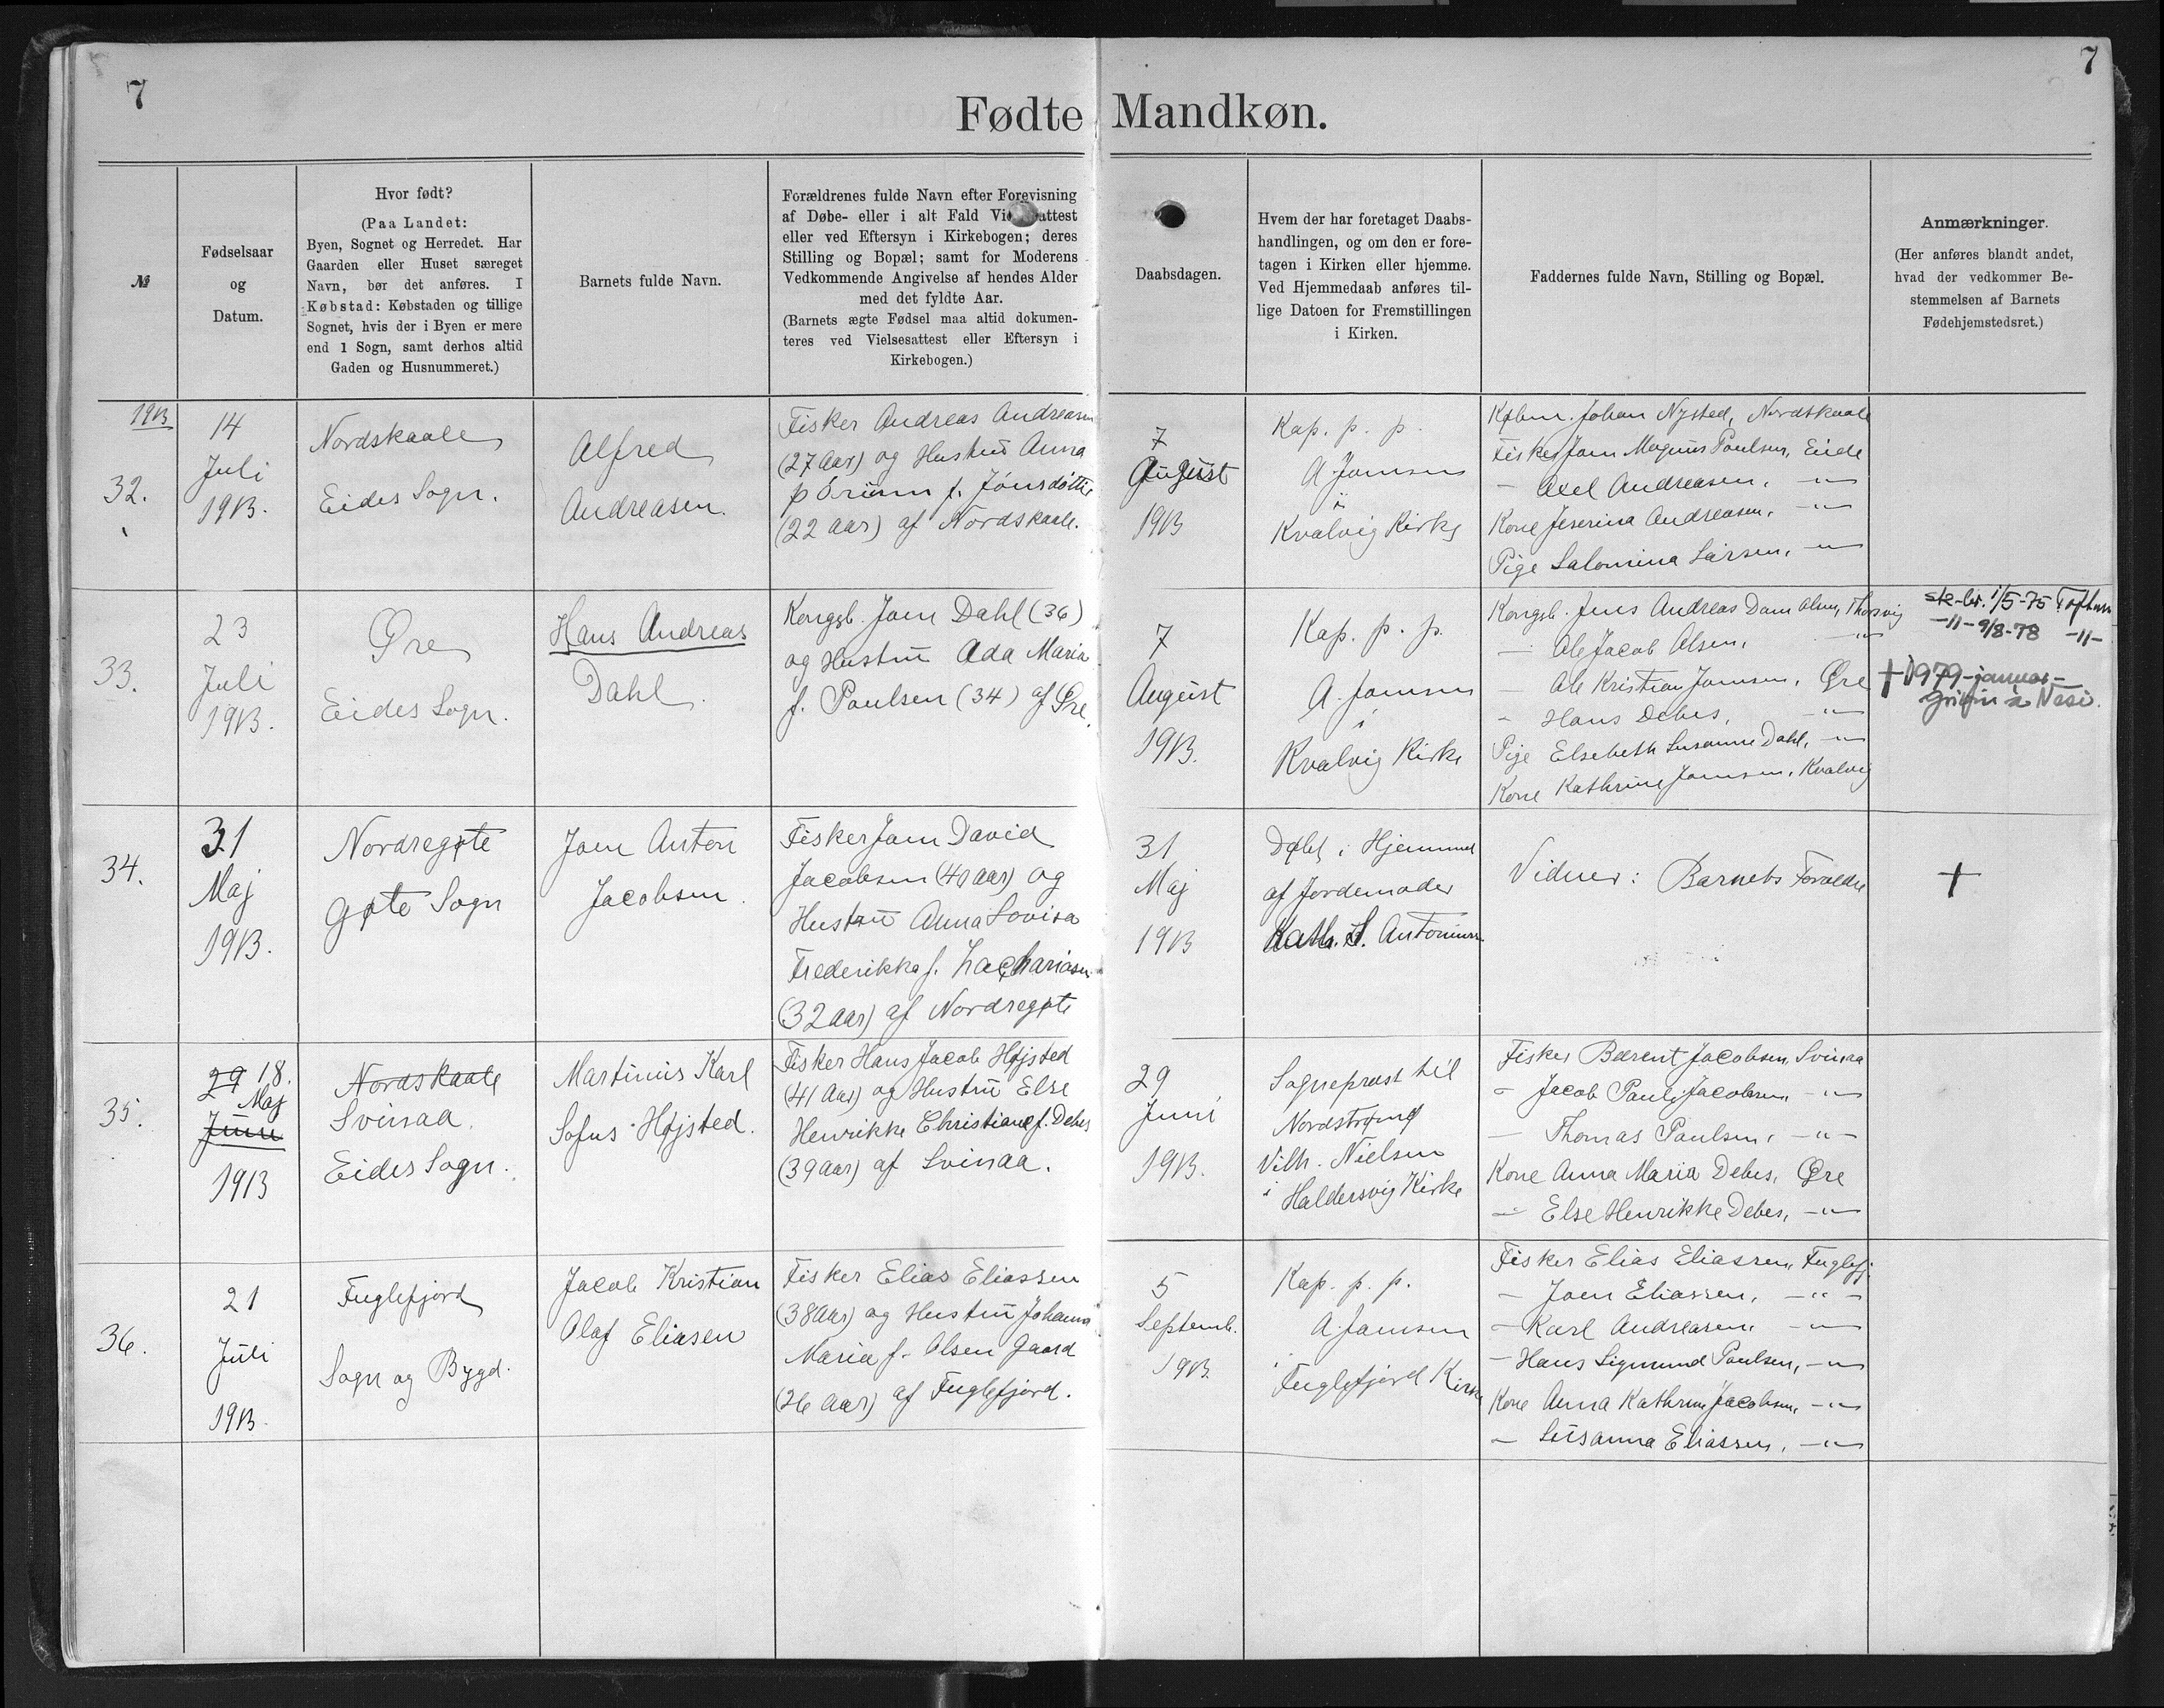 7
7
Fødte Mandkøn.
№
Fødselsaar
og
Datum.
Hvor født?
(Paa Landet:
Byen, Sognet og Herredet. Har
Gaarden eller Huset særeget
Navn, bør det anføres. I
Købstad: Købstaden og tillige
Sognet, hvis der i Byen er mere
end 1 Sogn, samt derhos altid
Gaden og Husnummeret.)
Barnets fulde Navn.
Forældrenes fulde Navn efter Forevisning
af Døbe- eller i alt Fald attest
eller ved Eftersyn i Kirkebogen; deres
Stilling og Bopæl; samt for Moderens
Vedkommende Angivelse af hendes Alder
med det fyldte Aar.
(Barnets ægte Fødsel maa altid dokumen-
teres ved Vielsesattest eller Eftersyn i
Kirkebogen.)
Daabsdagen.
Hvem der har foretaget Daabs-
handlingen, og om den er fore-
tagen i Kirken eller hjemme.
Ved Hjemmedaab anføres til-
lige Datoen for Fremstillingen
i Kirken.
Faddernes fulde Navn, Stilling og Bopæl.
Anmærkninger.
(Her anføres blandt andet,
hvad der vedkommer Be-
stemmelsen af Barnets
Fødehjemstedsret.)
1913
32.
14
Juli
1913.
Nordskaale
Eides Sogn.
Alfred
Andreasen.
Fisker Andreas Andreasen
(27 Aar) og Hustru Anna
þórunn f. Jónsdóttir
(22 aar) af Nordskaale.
7
August
1913
Kap. p. p.
A Joensen
i
Kvalvig Kirke
Købm. Johan Nysted, Nordskaale
Fisker Joen Magnus Poulsen, Eide
- Axel Andreasen, -"-
Kone Jeserina Andreasen, -"-
Pige Salomina Larsen, -"-
33.
23
Juli
1913.
Øre
Eides Sogn.
Hans Andreas
Dahl.
Kongsb. Joen Dahl (36)
og Hustru Ada Maria
f. Poulsen (34) af Øre.
7
August
1913.
Kap. p. p.
A. Joensen
i
Kvalvig Kirke
Kongsb. Jens Andreas Dam Olsen, Thorsvig
- Ole Jacob Olsen, -"-
- Ole Kristian Joensen, Øre
- Hans Debes, -"-
Pige Elsebeth Susanne Dahl, -"-
Kone Kathrine Joensen, Kvalvig
1/5-75
-11- 9/8-78 -11-
+ 1979 - januar -
34.
31
Maj
1913.
Nordregøte
Gøte Sogn
Joen Anton
Jacobsen.
Fisker Joen David
Jacobsen (40 aar) og
Hustru Anna Lovisa
Frederikke f. Zachariasen
(32 aar) af Nordregøte
31
Maj
1913
Døbt i Hjemmet
af Jordemoder
Kath. S. Antoniussen.
Vidner: Barnets Forældre
+
35.
29 18.
Maj
Juni
1913
Nordskaale
Svinaa.
Eides Sogn.
Martinus Karl
Sofus Højsted.
Fisker Hans Jacob Højsted
(41 Aar) og Hustru Else
Henrikke Christiane f. Debes
(39 aar) af Svinaa.
29
Juni
1913.
Sognepræst til
Nordstrømø
Vilh. Nielsen
i Haldersvig Kirke
Fisker Bærent Jacobsen, Svinaa
- Jacob Pauli Jacobsen, -"-
- Thomas Poulsen, -"-
Kone Anna Maria Debes, Øre
- Else Henrikke Debes, -"-
36.
21
Juli
1913.
Fuglefjord
Sogn og Bygd.
Jacob Kristian
Olaf Eliasen
Fisker Elias Eliassen
(38 Aar) og Hustru Johanna
Maria f. Olsen Gaard
(26 aar) af Fuglefjord.
5
Septemb.
1913.
Kap. p. p.
A. Joensen
i
Fuglefjord Kirke
Fisker Elias Eliassen, Fuglefj.
- Joen Eliassen, -"-
- Karl Andreasen, -"-
- Hans Sigmund Poulsen, -"-
Kone Anna Kathrine Jacobsen, -"-
- Susanna Eliassen, -"-